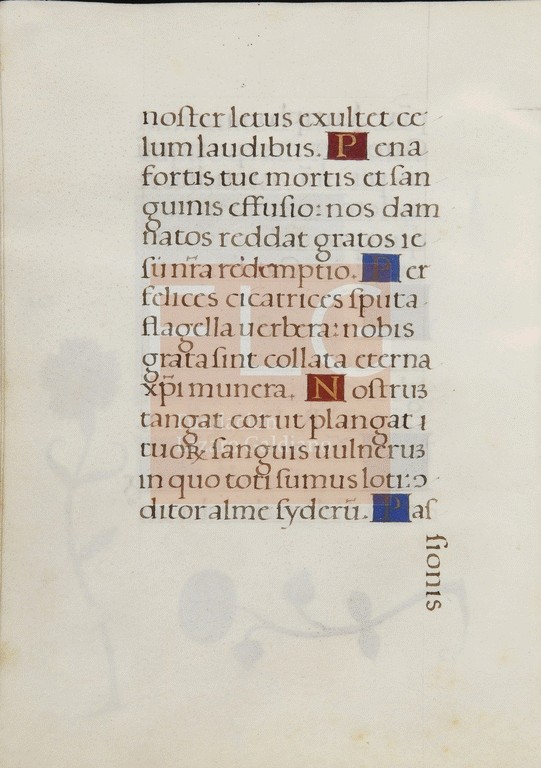 noſter letus exultet ce
lum laudibus. Pena
fortis tue mortis et ſan
guinis effuſio: nos dam
natos reddat gratos ie
ſu nr̄a redemptio. Per
felices cicatrices ſputa
flagella uerbera: nobis
grata ſint collata eterna
xp̄i munera. Noſtruꝫ
tangat cor ut plangat i
tuoꝝ ſanguis uulneruꝫ
in quo toti ſumus loti: o
ditor alme ſyderū. Paſ
ſionis
FLC